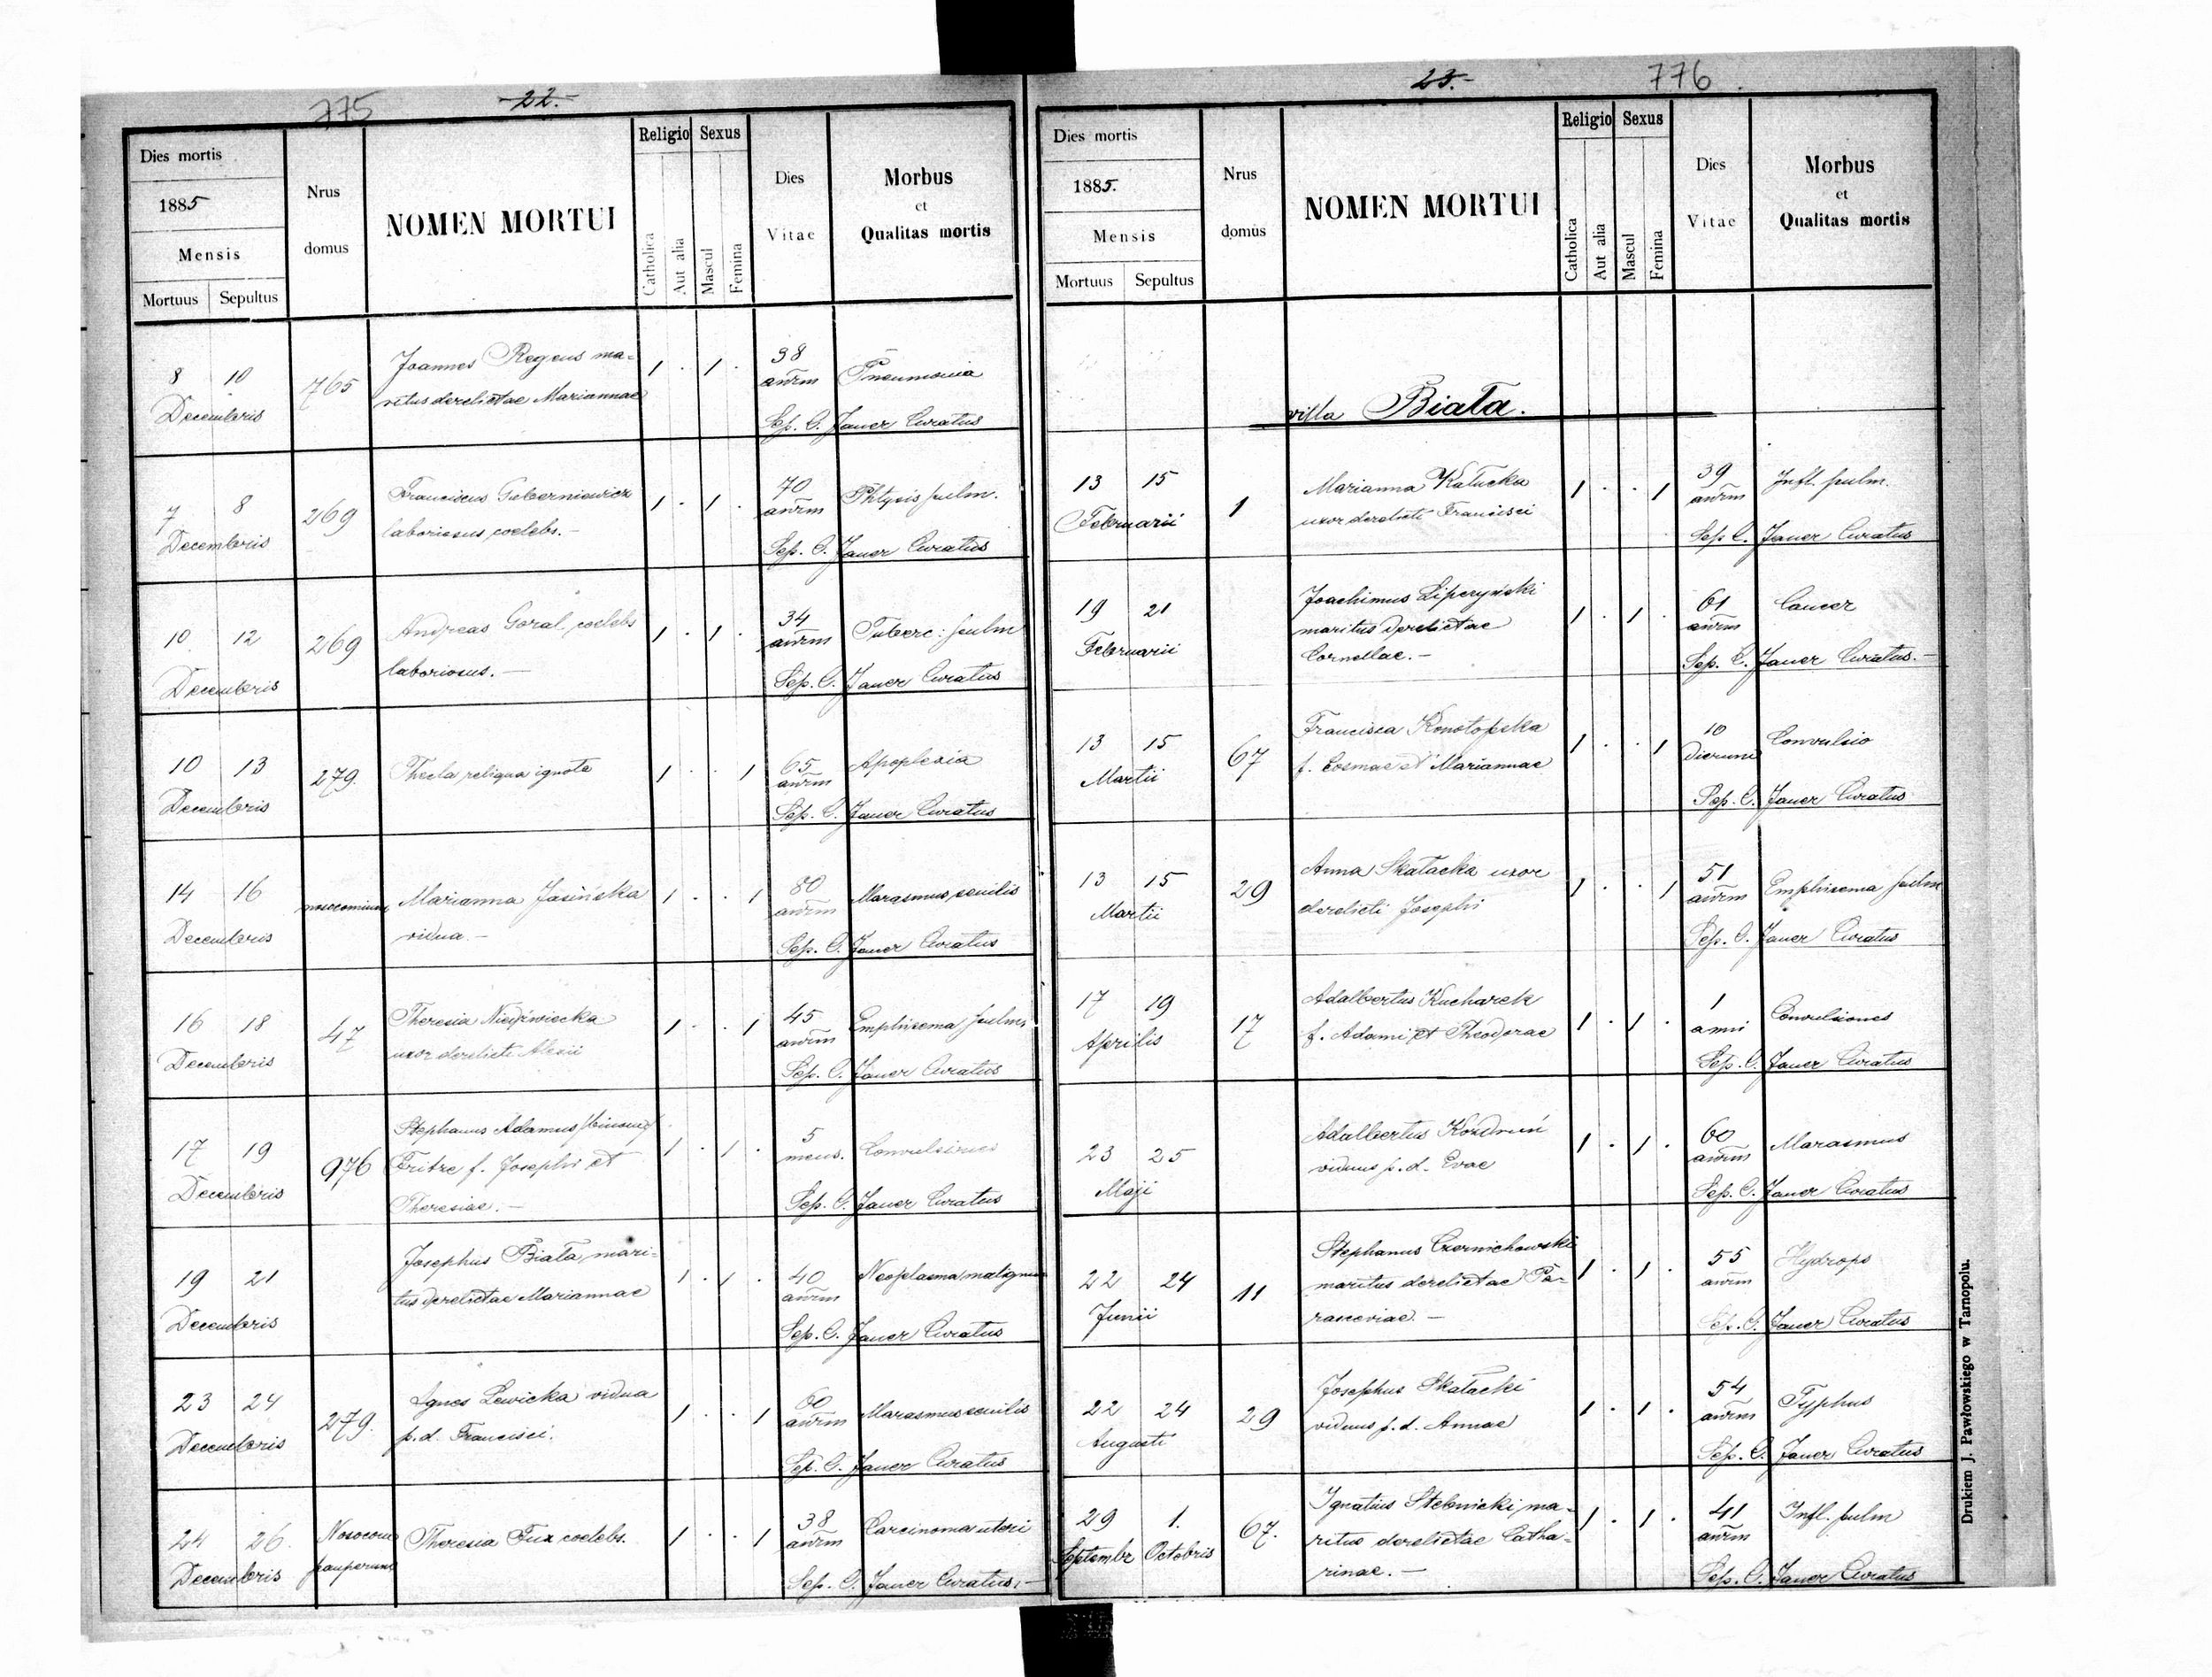 775
22.
Dies mortis
1885
Mensis
Mortuus Sepultus
Nrus domus
NOMEN MORTUI
Religio
Catholica
Aut alia
Sexus
Mascul
Femina
Dies Vitae
Morbus
et
Qualitas mortis
8 10 Decembris 765
Joannes Regeus ma-
ritus derelictae Mariannae
1 . 1 .
38 annrm
Pneumonia
Sep. C. Jauer Curatus
7 8 Decembris 269
Franciscus Goberniewicz
laboriosus coelebs.-
1 . 1 .
70 annrm
Phtysis pulm.
Sep. C. Jauer Curatus
10 12 Decembris 269
Andreas Goral coelebs
laboriosus.-
1 . 1 .
34 annrm
Tuberc: pulm
Sep. C. Jauer Curatus
10 13 Decembris 279.
Thecla reliqua ignota
1 . . 1
65 annrm
Apoplexia
Sep. C. Jauer Curatus
14 16 Decembris nosocomium
Marianna Jasińska
vidua.-
1 . . 1
80 annrm
Marasmus senilis
Sep. C. Jauer Curatus
16 18 Decembris 47
Theresia Niedźwiecka
uxor derelicti Alexii
1 . . 1
45 annrm
Emphisema pulm
Sep. C. Jauer Curatus
17 19 Decembris 976
Stephanus Adamus /binom/
Fritze f. Josephi et
Theresiae.-
1 . 1 .
5 mens.
Convulsiones
Sep. C. Jauer Curatus
19 21 Decembris
Josephus Biała mari-
tus derelictae Mariannae
1 . 1 .
40 annrm
Neoplasma malignum
Sep. C. Jauer Curatus
23 24 Decembris 279.
Agnes Lewicka vidua
p.d. Francisci.
1 . . 1
60 annrm
Marasmus senilis
Sep. C. Jauer Curatus
24 26. Decembris Nosocom pauperum
Theresia Fux coelebs.
1 . . 1
38 annrm
Carcinoma uteri
Sep. C. Jauer Curatus.-
23.
776
Dies mortis
1885.
Mensis
Mortuus Sepultus
Nrus domus
NOMEN MORTUI
Religio
Catholica
Aut alia
Sexus
Mascul
Femina
Dies Vitae
Morbus
et
Qualitas mortis
villa Biała.
13 15 Februarii 1
Marianna Kałucka
uxor derelicti Francisci
1 . . 1
39 annrm
Infl. pulm.
Sep. C. Jauer Curatus
19 21 Februarii
Joachimus Lipczyński
maritus derelictae
Cornellae.-
1 . 1 .
61 annrm
Cancer
Sep. C. Jauer Curatus.-
13 15 Martii 67
Francisca Konotopska
f. Cosmae et Mariannae
1 . . 1
10 dierum
Convulsio
Sep. C. Jauer Curatus
13 15 Martii 29
Anna Skałacka uxor
derelicti Josephi
1 . . 1
51 annrm
Emphisema pulm
Sep. C. Jauer Curatus
17 19 Aprilis 17
Adalbertus Kucharek
f. Adami et Theodorae
1 . 1 .
1 anni
Convulsiones
Sep. C. Jauer Curatus
23 25 Maji
Adalbertus Kordruń
viduus p.d. Evae
1 . 1 .
60 annrm
Marasmus
Sep. C. Jauer Curatus
22 24 Junii 11
Stephanus Czernichowski
maritus derelictae Pa-
rasceviae.-
1 . 1 .
55 annrm
Hydrops
Sep. C. Jauer Curatus
22 24 Augusti 29
Josephus Skałacki
viduus p.d. Annae
1 . 1 .
54 annrm
Typhus
Sep. C. Jauer Curatus
29 1. Septembr Octobris 67.
Ignatius Stebnicki ma-
ritus derelictae Catha-
rinae.-
1 . 1 .
41 annrm
Infl. pulm
Sep. C. Jauer Curatus
Drukiem J. Pawłowskiego w Tarnopolu.